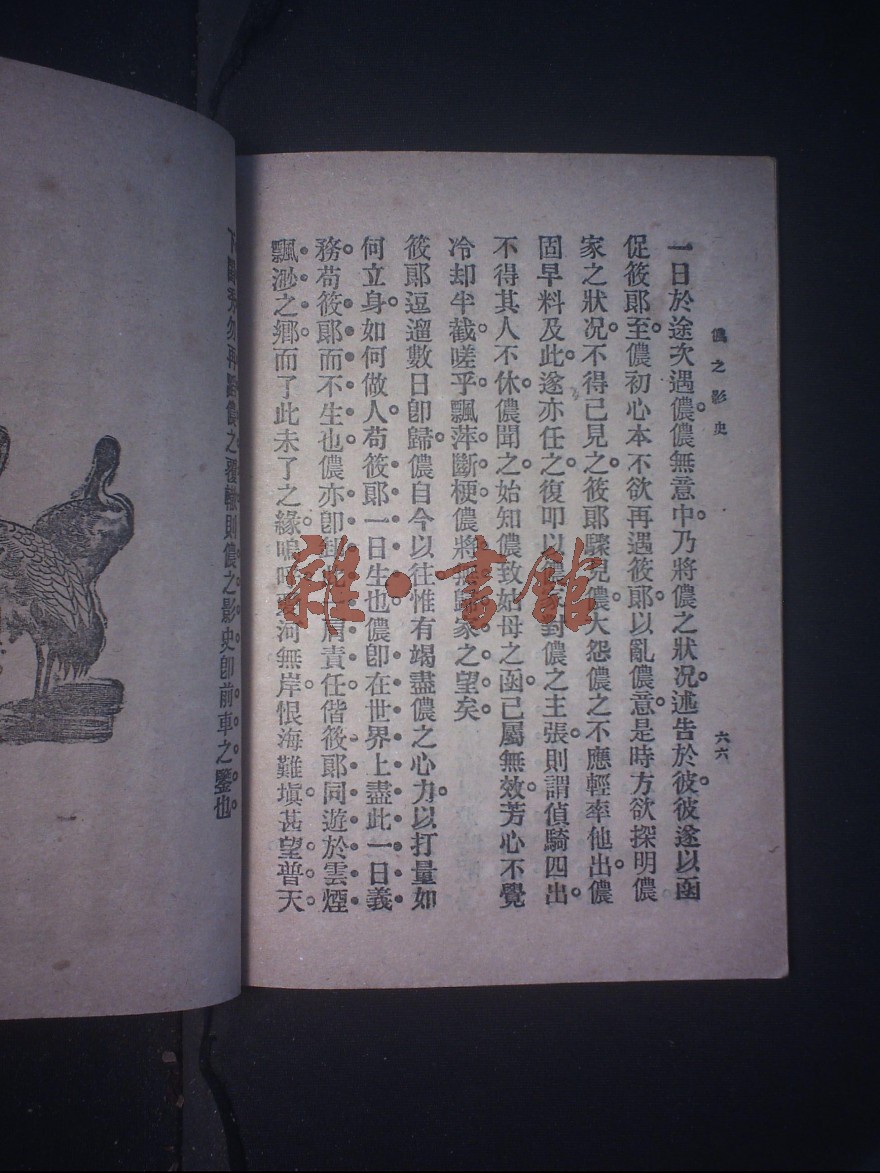 儂之影史
六六
一日於途次遇儂。儂無意中。乃將儂之狀況。述告於彼。彼遂以函
促筱郞至。儂初心本不欲再遇筱郞。以亂儂意。是時方欲探明儂
家之狀况。不得已見之。筱郞驟見儂。大怨儂之不應輕率他出。儂
固早料及此。遂亦任之。復叩以儂對儂之主張。則謂偵騎四出。
不得其人不休。儂聞之。始知儂致妣母之函。已屬無效。芳心不覺
冷却半截。嗟乎。飄萍斷梗。儂將無歸家之望矣。
筱郞逗遛數日卽歸。儂自今以往。惟有竭盡儂之心力。以打量如
何立身。如何做人。苟筱郞一日生也。儂卽在世界上盡此一日義
務。苟筱郞而不生也。儂亦卽卸肩責任。偕筱郞同遊於雲煙
飄渺之鄕。而了此未了之緣。嗚呼。愛河無岸。恨海難塡。甚望普天
下勿再蹈儂之覆轍。則儂之影史。卽前車之鑒也。
雜·書館